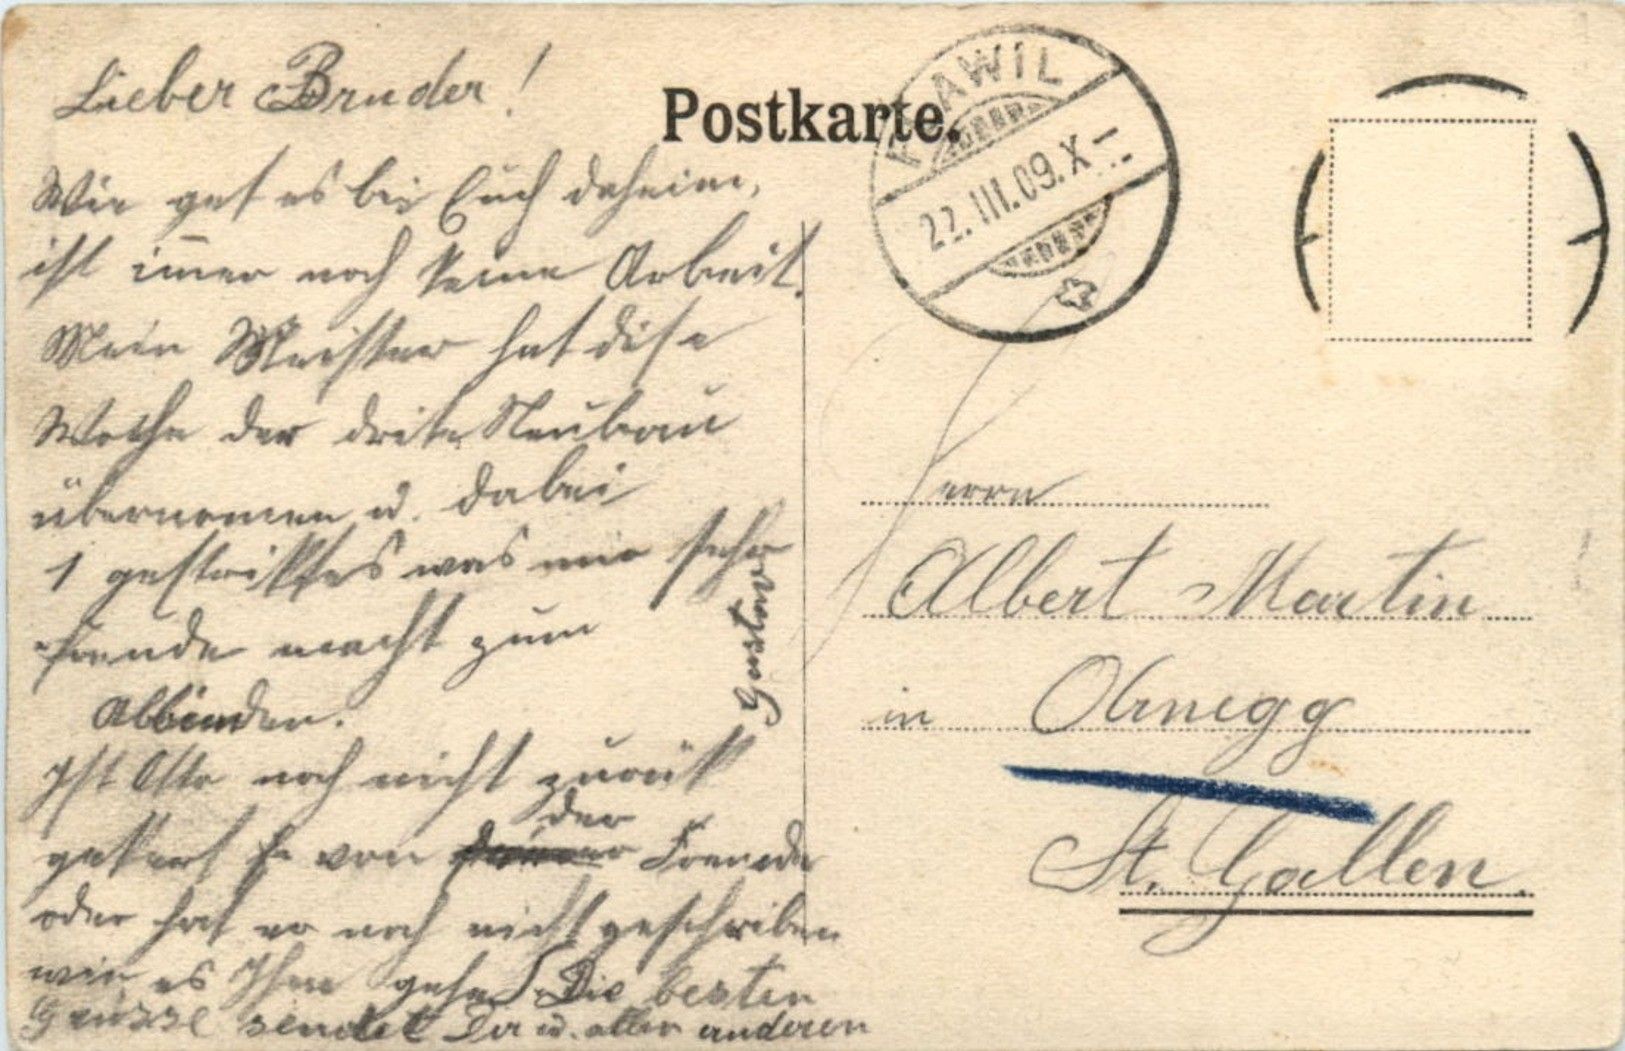 Lieber Bruder!
Wie get es bei Euch daheim,
ist imer noch keine Arbeit.
Mein Meister hat dise
Woche der drite Neubau
übernomen u. dabei
1 gestriktes was mir sehr
Freude macht zum
Abbinden.
Ist Otto noch nicht zurük
gekert von der Fremde
oder hat er noch nicht geschriben
wie es Ihm gehe. Die besten
Grüsse sendet Dir u. allen anderen
Gustav
Postkarte.
KAWIL
22.III.09.X
Herrn
Albert Martin
in Obnegg
St. Gallen.